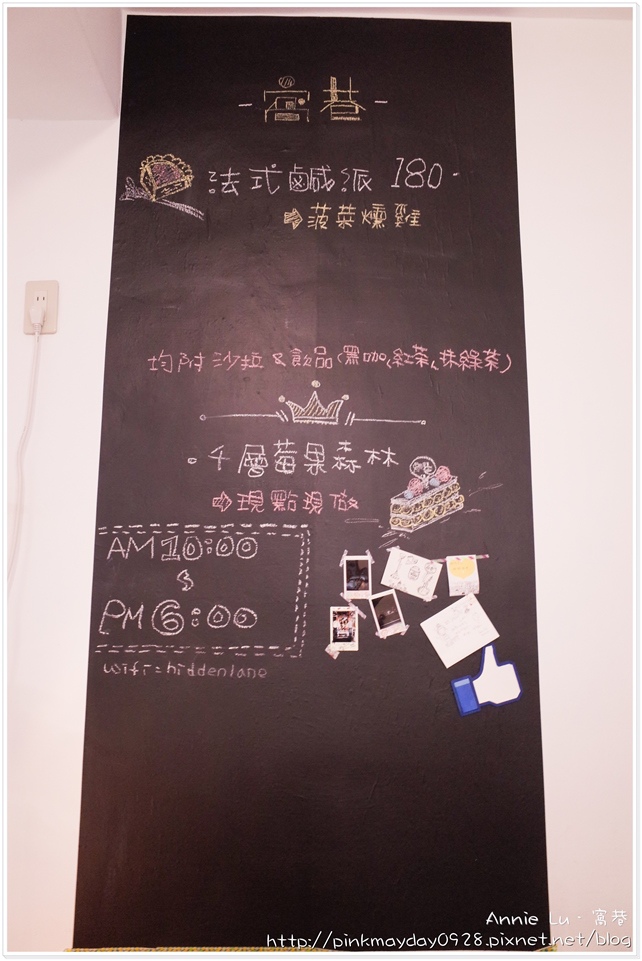 -窩巷-
法式鹹派 180.
⇨菠菜燻雞
均附沙拉&飲品(黑咖、紅茶、抹綠茶)
。千層莓果森林
⇨現點現做
AM 10:00
PM 6:00
wifi=hiddenlane
Annie Lu.窩巷
http://pinkmayday0928.pixnet.net/blog